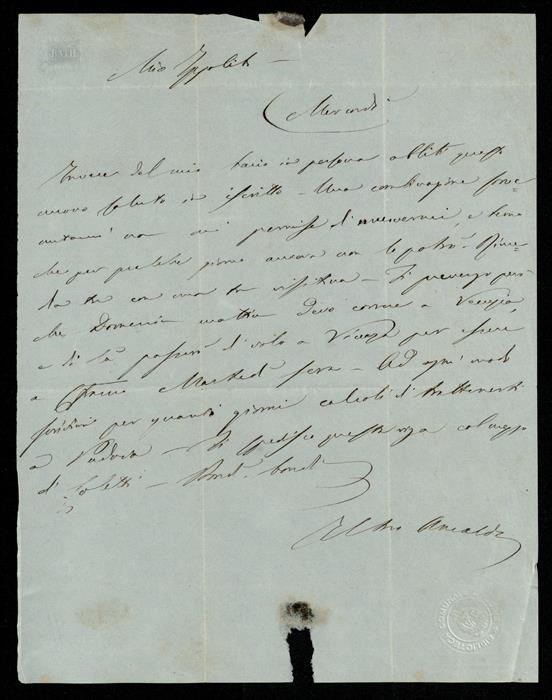 BATH
Mio Ippolito –
Mercordì
Invece del mio bacio in persona abbiti questo
nuovo saluto in iscritto – Una combinazione
non mi permise di muovermi, e temo
che per qualche giorno ancora non lo potrò.
da te con una tua visitina – Ti prevengo però
che Domenica mattina devo correre a Venezia,
e di là passerò di volo a Vicenza per essere
a Martedì sera – Ad ogni modo
scrivimi per quanti giorni calcoli di trattenerti
a Padova – Ti spedisco questa mia col mezzo
di
Il tuo Arnaldo
BIBLIOTECA COMUNALE